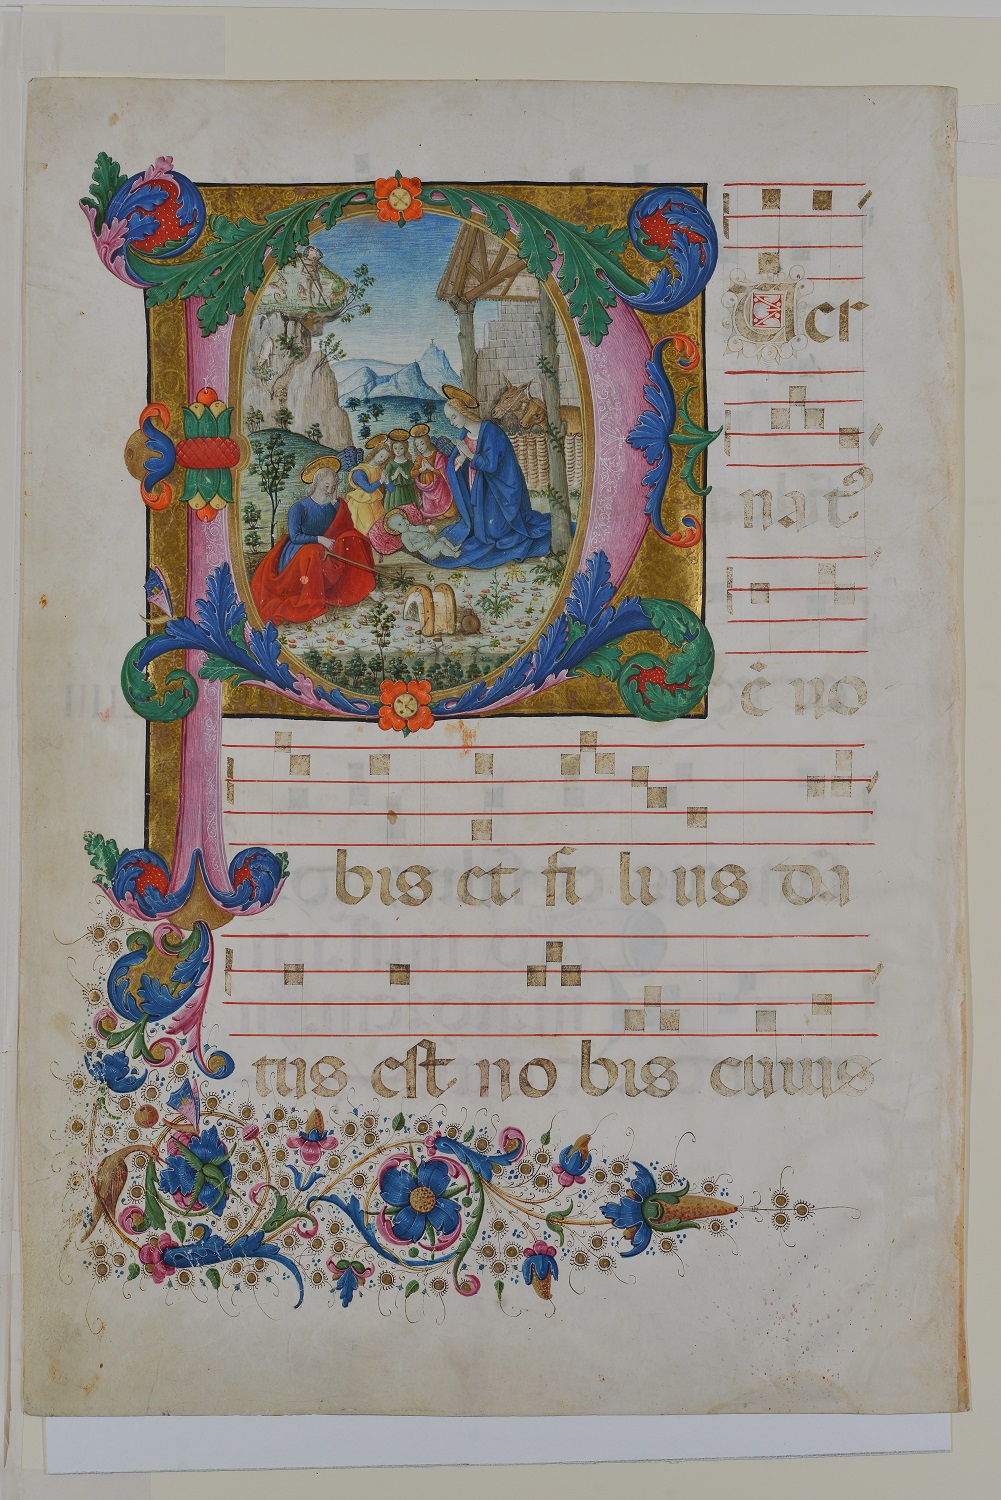 P Uer
nat⁹
ē no
bis et fi lius da
tus est no bis cuius